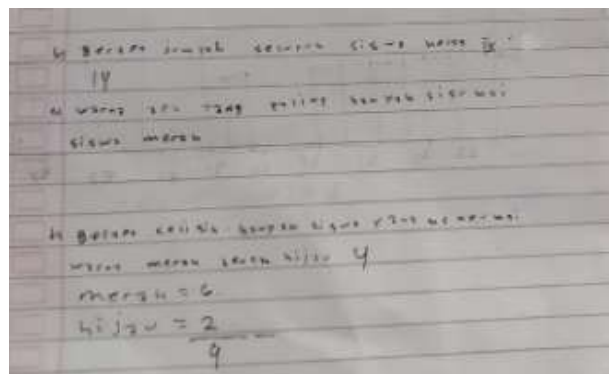 b) Berapa jumlah seluruh siswa kelas IV
14
c) warna apa yang paling banyak disukai
siswa merah
d) Berapa selisih banyak siswa yang menyukai
warna merah dengan hijau 4
merah = 6
hijau = 2
4